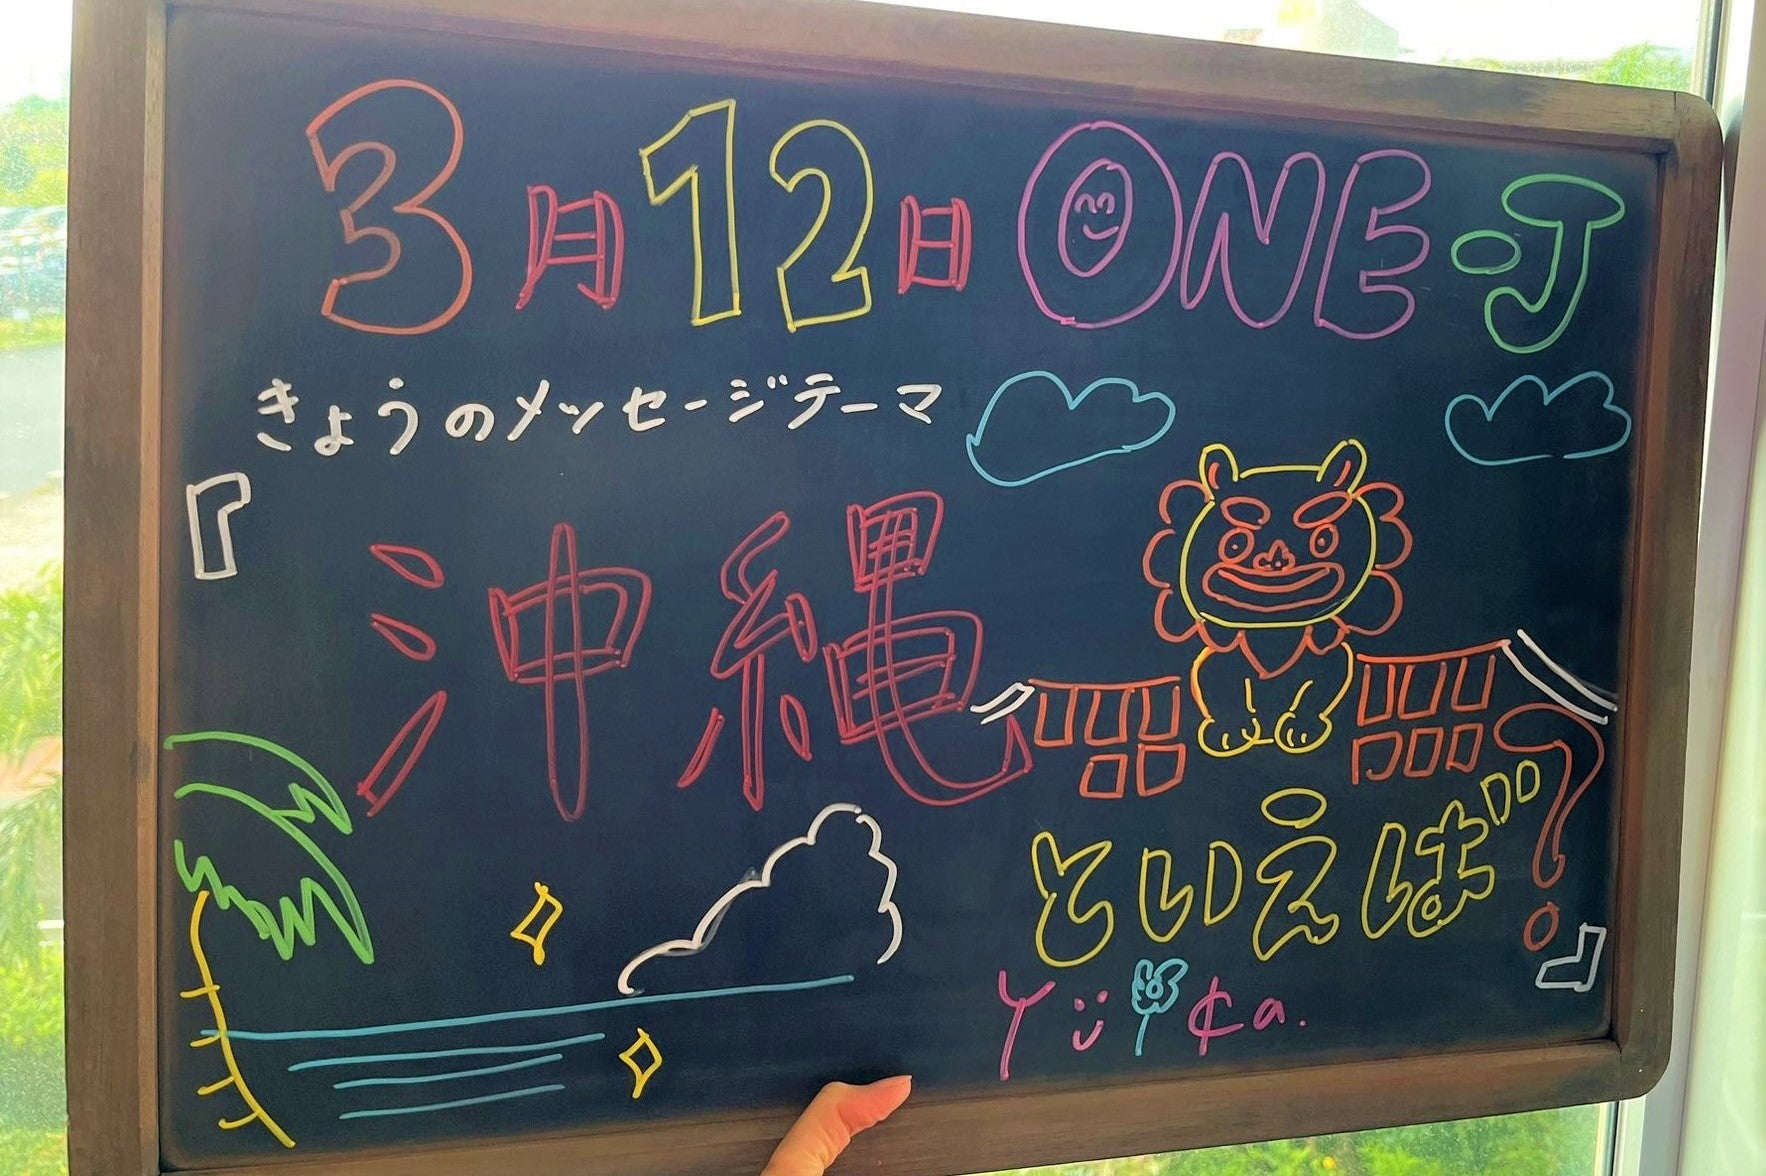 3月12日 ONE-J
きょうのメッセージテーマ
『沖縄
といえば?』
Yüika.